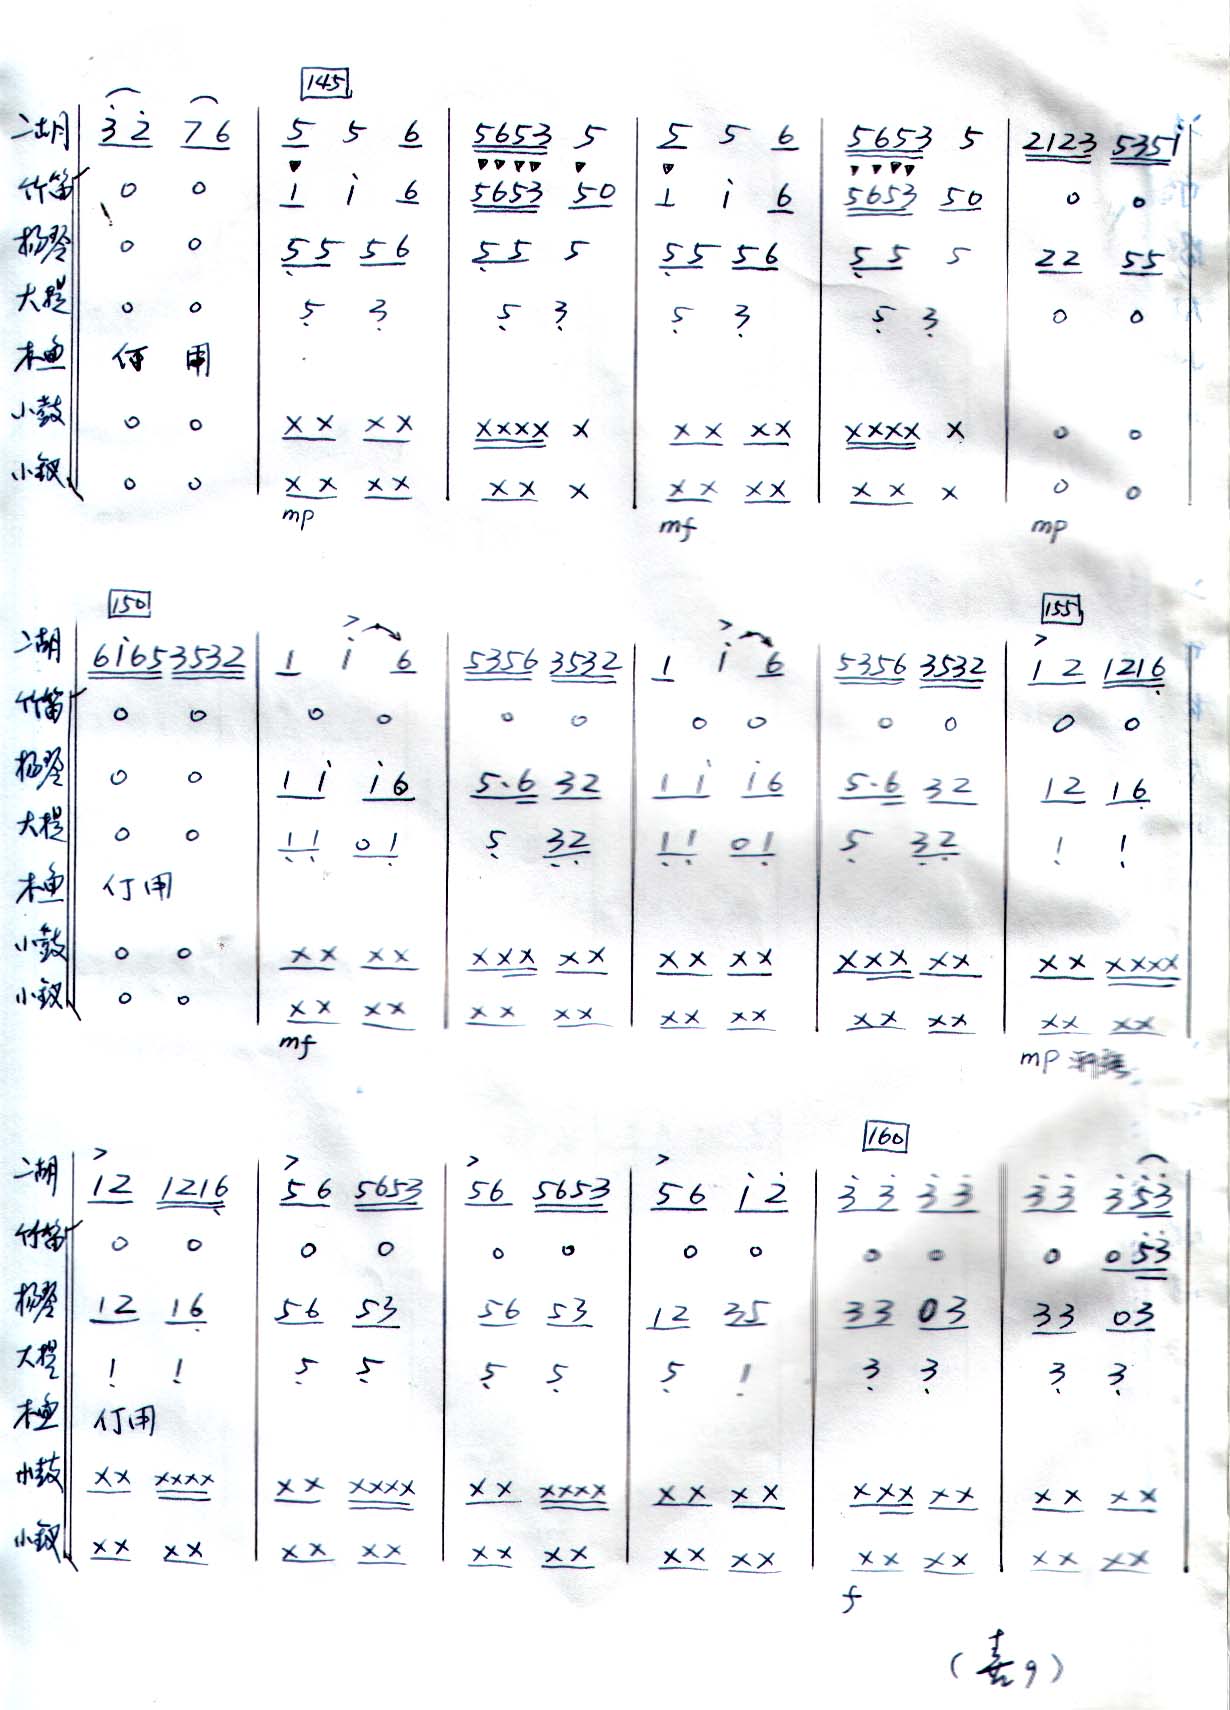 145
二胡 3̇2̇ 76 | 5 5 6 | 5653 5 | 5 5 6 | 5653 5 | 2123 535i
竹笛 0 0 | 1 i 6 | 5653 50 | 1 i 6 | 5653 50 | 0 0
扬琴 0 0 | 5̣5 56 | 5̣5 5 | 5̣5 56 | 5̣5 5 | 22 55
大提 0 0 | 5̣ 3̣ | 5̣ 3̣ | 5̣ 3̣ | 5̣ 3̣ | 0 0
木鱼 何用
小鼓 0 0 | XX XX | XXXX X | XX XX | XXXX X | 0 0
小钗 0 0 | XX XX | XX X | XX XX | XX X | 0 0
mp mf mp
150 155
二胡 6i65 3532 | 1 i 6 | 5356 3532 | 1 i 6 | 5356 3532 | 12 1216̣
竹笛 0 0 | 0 0 | 0 0 | 0 0 | 0 0 | 0 0
扬琴 0 0 | 1i i6 | 5·6 32 | 1i i6 | 5·6 32 | 12 16̣
大提 0 0 | 1̣1̣ 01̣ | 5̣ 3̣2̣ | 1̣1̣ 01̣ | 5̣ 3̣2̣ | 1̣ 1̣
木鱼 何用
小鼓 0 0 | XX XX | XXX XX | XX XX | XXX XX | XX XXXX
小钗 0 0 | XX XX | XX XX | XX XX | XX XX | XX XX
mf mp
160
二胡 12 1216̣ | 56 5653 | 56 5653 | 56 i2̇ | 3̇3̇ 3̇3̇ | 3̇3̇ 3̇5̇3̇
竹笛 0 0 | 0 0 | 0 0 | 0 0 | 0 0 | 0 05̇3̇
扬琴 12 16̣ | 56 53 | 56 53 | 12 35 | 33 03 | 33 03
大提 1̣ 1̣ | 5̣ 5̣ | 5̣ 5̣ | 5̣ 1̣ | 3̣ 3̣ | 3̣ 3̣
木鱼 何用
小鼓 XX XXXX | XX XXXX | XX XXXX | XX XX | XXX XX | XX XX
小钗 XX XX | XX XX | XX XX | XX XX | XX XX | XX XX
f
(喜9)